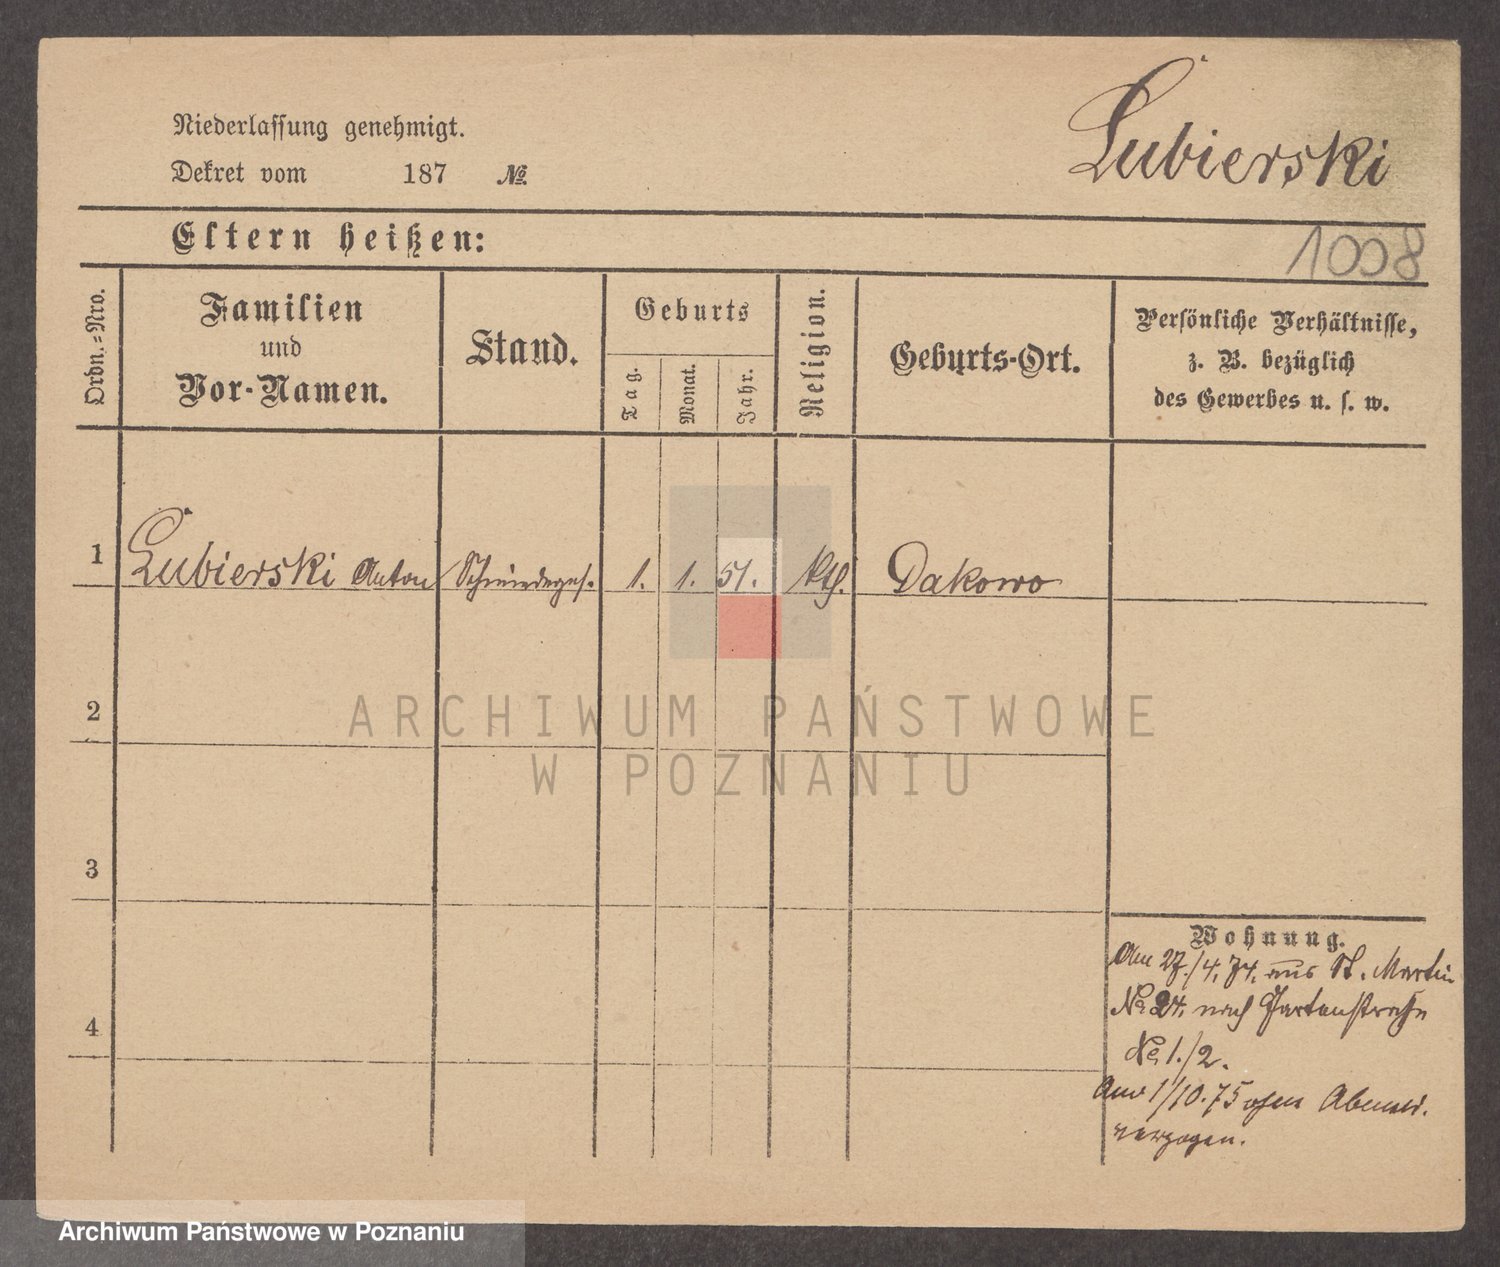 Lubierski
Niederlassung genehmigt.
Dekret vom 187 №
1008
Eltern heißen:
Ordn.=Nro.
Familien
und
Vor-Namen.
Stand.
Geburts
Tag.
Monat.
Jahr.
Religion.
Geburts-Ort.
Persönliche Verhältnisse,
z. B. bezüglich
des Gewerbes u. s. w.
1 Lubierski Anton Schmiedeges. 1. 1. 51. kth. Dakowo
2
3
4
Wohnung.
Am 27./4. 74. aus St. Martin
No 24. nach Gartenstraße
No 1./2.
Am 1/10. 75 ohne Abmel.
verzogen.
ARCHIWUM PAŃSTWOWE
W POZNANIU
Archiwum Państwowe w Poznaniu